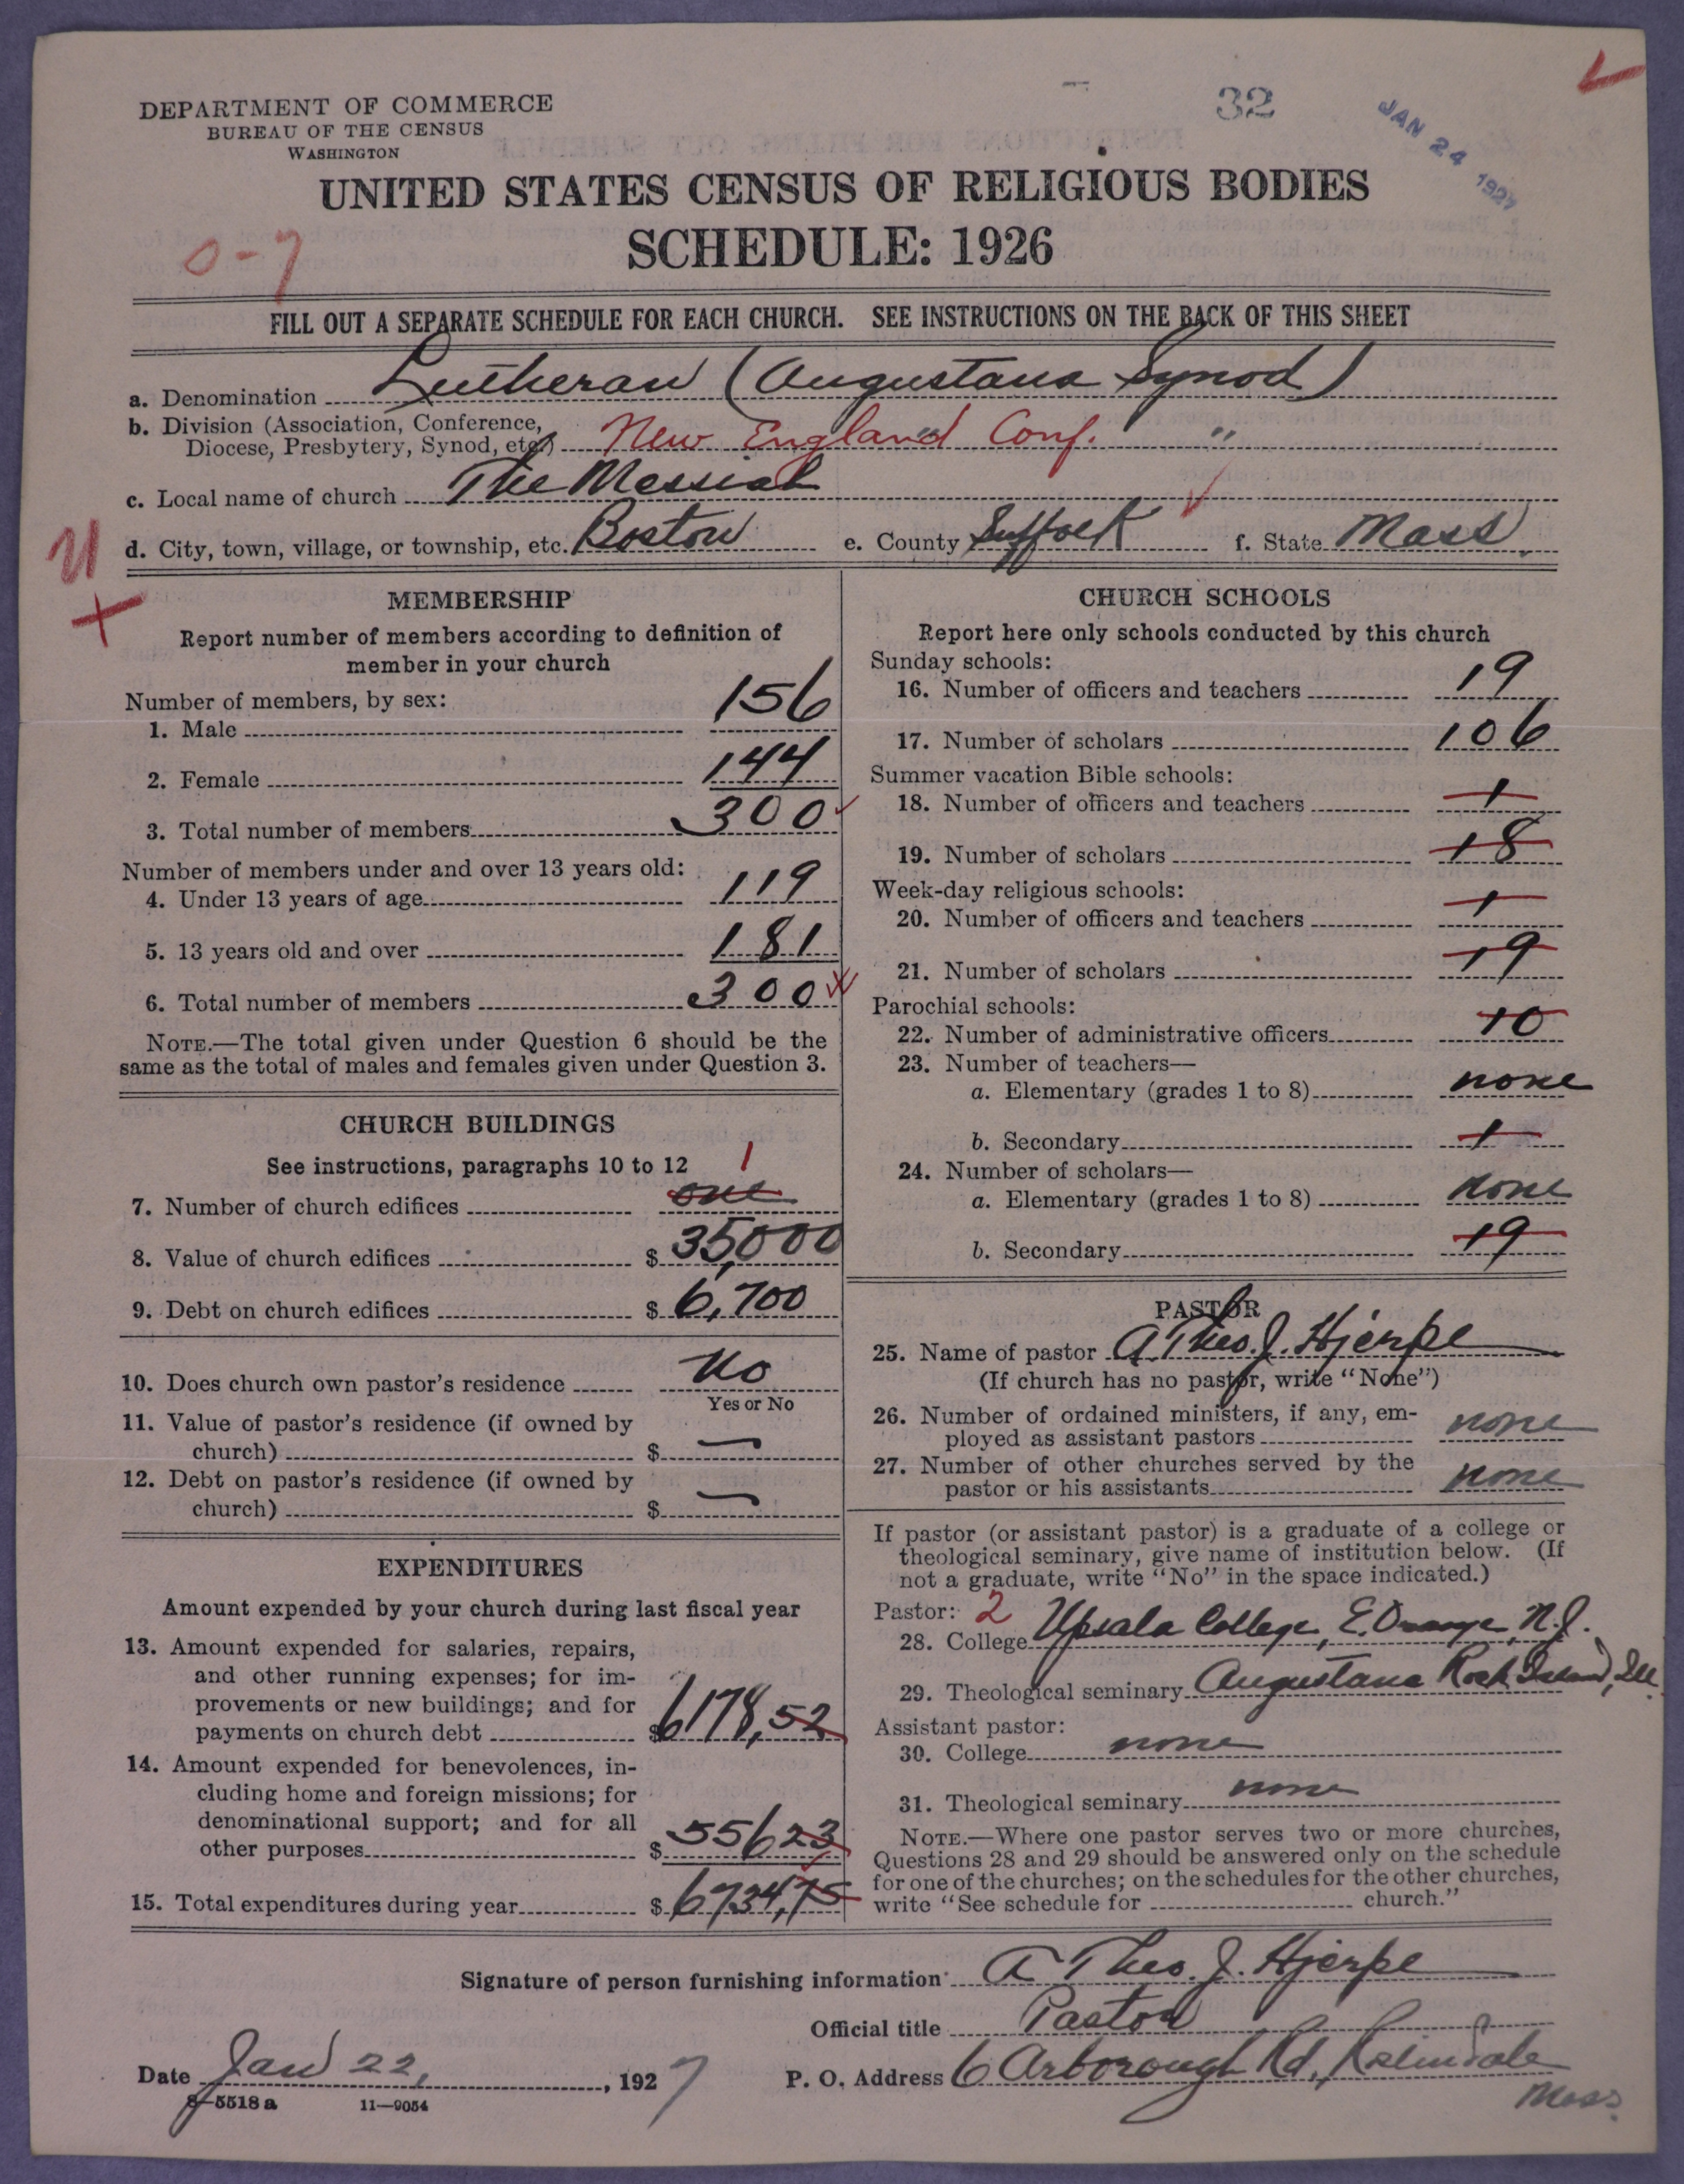 32
JAN 24 1927
DEPARTMENT OF COMMERCE
BUREAU OF THE CENSUS
WASHINGTON
UNITED STATES CENSUS OF RELIGIOUS BODIES
SCHEDULE: 1926
0-7
FILL OUT A SEPARATE SCHEDULE FOR EACH CHURCH. SEE INSTRUCTIONS ON THE BACK OF THIS SHEET
a. Denomination Lutheran (Augustana Synod)
b. Division (Association, Conference,
Diocese, Presbytery, Synod, etc.) New England Conf. "
c. Local name of church The Messiah
d. City, town, village, or township, etc. Boston e. County Suffolk f. State Mass.
MEMBERSHIP
Report number of members according to definition of
member in your church
Number of members, by sex:
1. Male 156
2. Female 144
3. Total number of members 300
Number of members under and over 13 years old:
4. Under 13 years of age 119
5. 13 years old and over 181
6. Total number of members 300
NOTE.—The total given under Question 6 should be the
same as the total of males and females given under Question 3.
CHURCH BUILDINGS
See instructions, paragraphs 10 to 12
1
7. Number of church edifices one
8. Value of church edifices $ 35,000
9. Debt on church edifices $ 6,700
10. Does church own pastor's residence No
Yes or No
11. Value of pastor's residence (if owned by
church) $ —
12. Debt on pastor's residence (if owned by
church) $ —
EXPENDITURES
Amount expended by your church during last fiscal year
13. Amount expended for salaries, repairs,
and other running expenses; for im-
provements or new buildings; and for
payments on church debt $6178,52
14. Amount expended for benevolences, in-
cluding home and foreign missions; for
denominational support; and for all
other purposes $ 556 23
15. Total expenditures during year $ 6734,75
CHURCH SCHOOLS
Report here only schools conducted by this church
Sunday schools:
16. Number of officers and teachers 19
17. Number of scholars 106
Summer vacation Bible schools:
18. Number of officers and teachers 1
19. Number of scholars 18
Week-day religious schools:
20. Number of officers and teachers 1
21. Number of scholars 19
Parochial schools:
22. Number of administrative officers 10
23. Number of teachers—
a. Elementary (grades 1 to 8) none
b. Secondary 1
24. Number of scholars—
a. Elementary (grades 1 to 8) none
b. Secondary 19
PASTOR
25. Name of pastor A Theo. J. Hjerpe
(If church has no pastor, write "None")
26. Number of ordained ministers, if any, em-
ployed as assistant pastors none
27. Number of other churches served by the
pastor or his assistants none
If pastor (or assistant pastor) is a graduate of a college or
theological seminary, give name of institution below. (If
not a graduate, write "No" in the space indicated.)
Pastor: 2
28. College Upsala College, E. Orange, N.J.
29. Theological seminary Augustana Rock Island, Ill.
Assistant pastor:
30. College none
31. Theological seminary none
NOTE.—Where one pastor serves two or more churches,
Questions 28 and 29 should be answered only on the schedule
for one of the churches; on the schedules for the other churches,
write "See schedule for church."
Signature of person furnishing information A Theo. J. Hjerpe
Official title Pastor
Date Jan 22, 1927 P. O. Address 6 Arborough Rd, Roslindale
Mass.
8-5518 a 11—9054